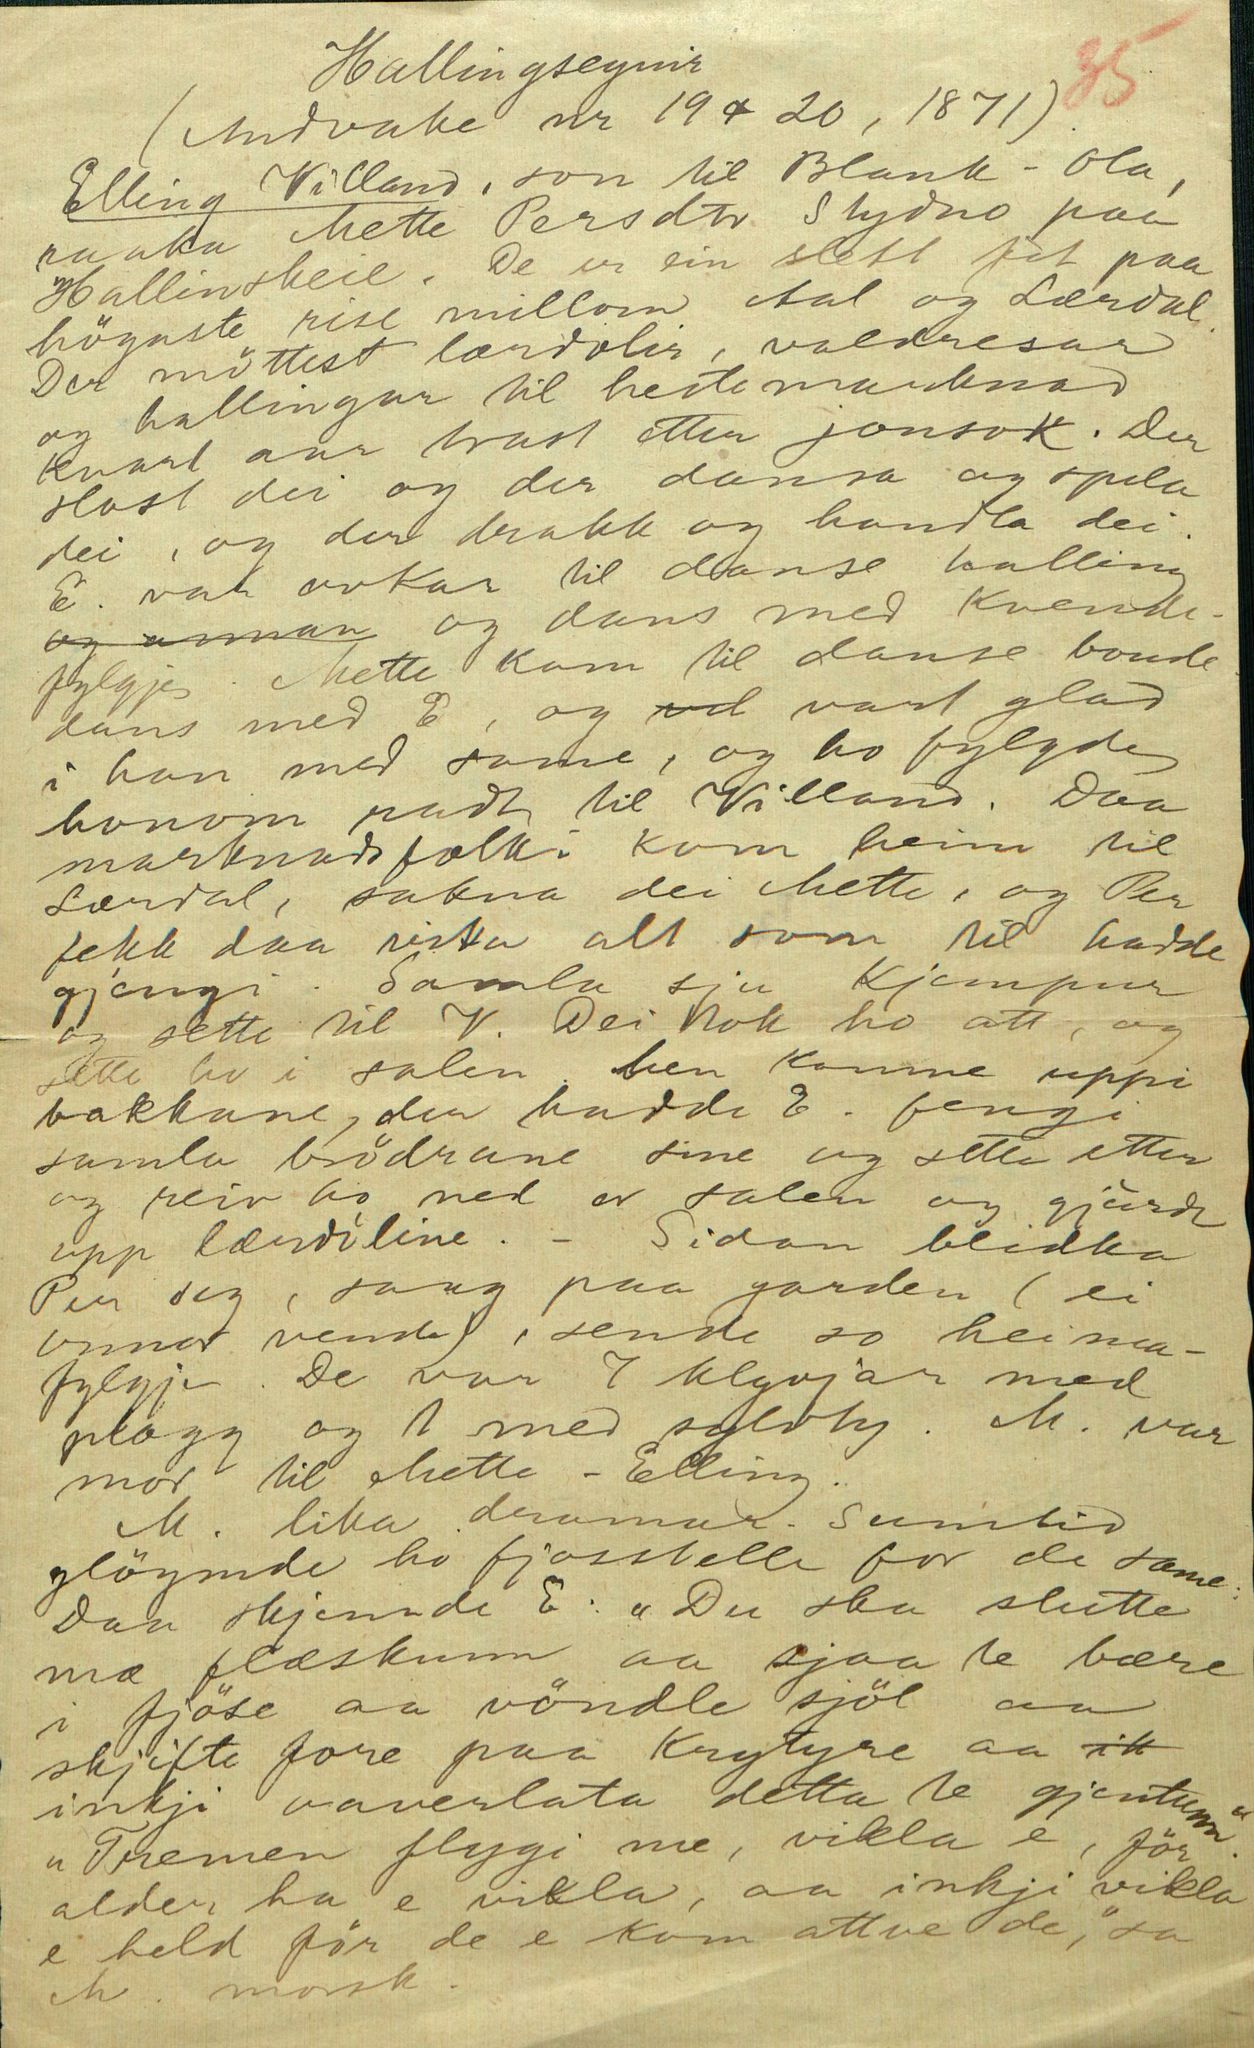 Hallingsegnir
35
(Andvake nr 19 & 20, 1871).
Elling Villand, son til Blank-Ola,
raaka Mette Persdtr Stydno paa
Hallinskeie. De er ein slett fit paa
högaste rise millom Aal og Lærdal.
Der möttest lærdölir, valdresar
og hallingar til hestemarknad
kvart aar trast etter jonsok. Der
slost dei og der dansa og spela
dei, og der drakk og handla dei.
E. var avkar til danse halling
og annan og dans med kvende-
fylgje. Mette kom til danse bonde
dans med E, og vd vart glad
i han med same, og ho fylgde
honom radt til Villand. Daa
marknadsfolki kom heim til
Lærdal, sakna dei Mette, og Per
fekk daa vita alt som til hadde
gjengi. Samla sju kjempur
og sette til V. Dei tok ho att, og
sette ho i salen. Men komne uppi
bakkane, der hadde E. fengi
samla brödrane sine og sette etter
og reiv ho ned or salen og gjorde
upp lærdöline. - Sidan blidka
Per seg, saag paa garden (ei
onnor vende), sende so heima-
fylgje. De var 7 klyvjar med
plogg og 1 med sylvty. M. var
mor til Mette-Elling.
M. lika dramar. Sumtid
glöymde ho fjosstelle for de same.
Daa skjemde E: "Du ska slutte
mæ flæskum aa sjaa te bære
i fjöse aa vöndle sjöl aa
skjifte fore paa krytyre aa ik
inkji overlata detta te gjentum."
"Fremen flygi me, vikla e, för
alder ha e vikla, aa inkji vikla
e held för de e kom attve de," sa
M. morsk.